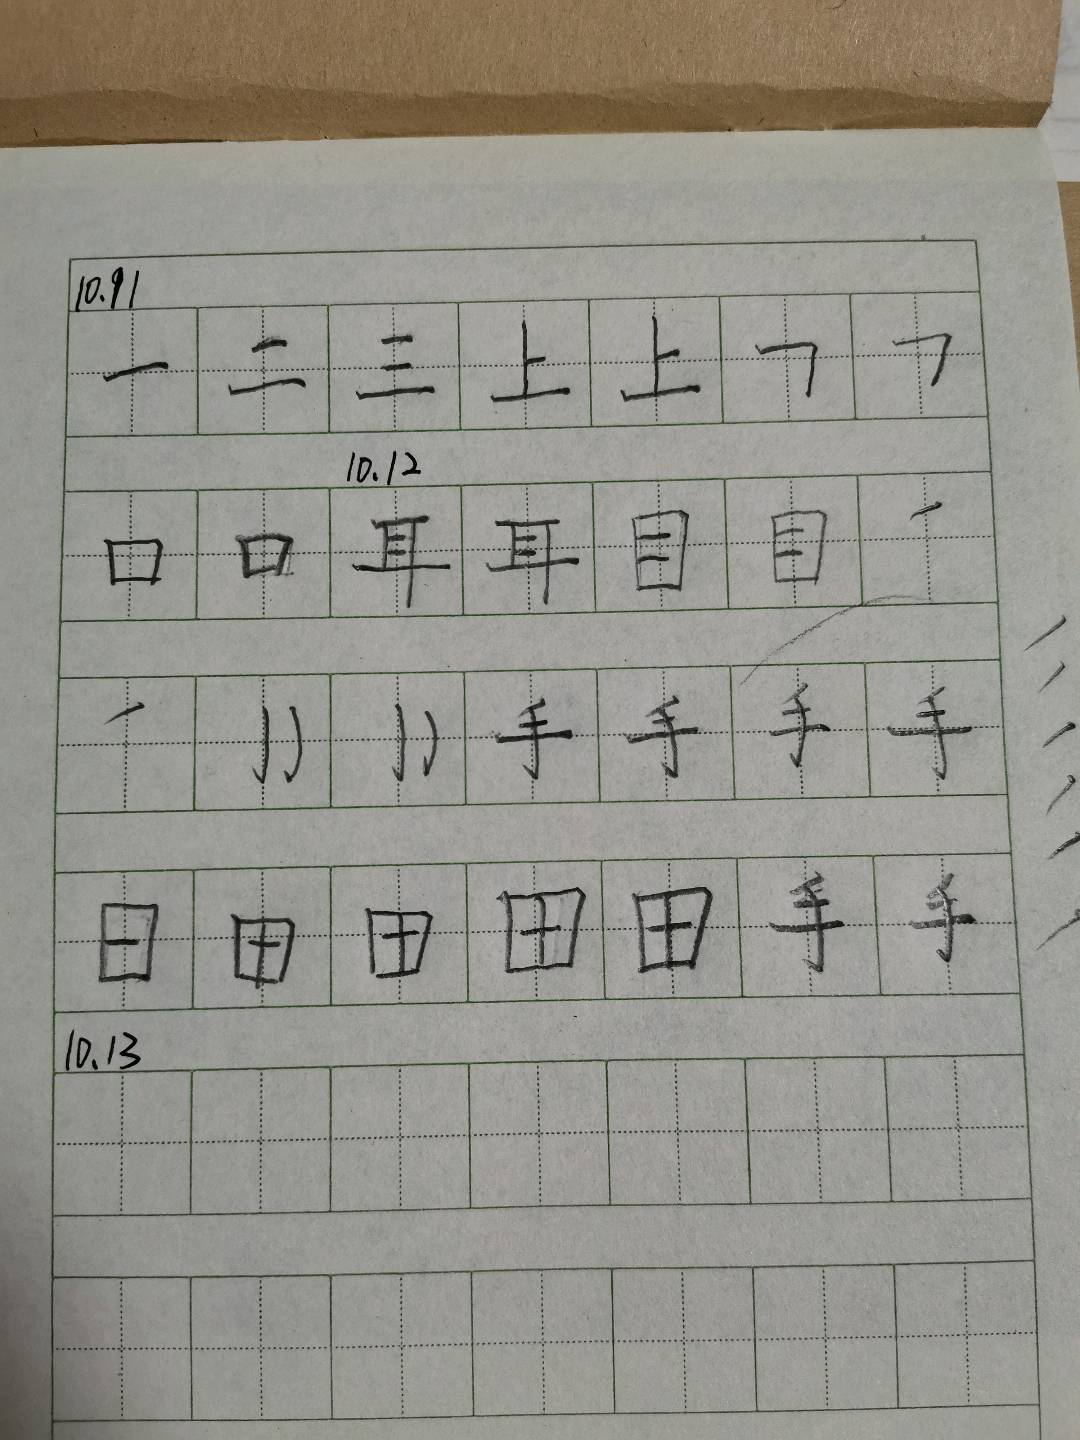 10.91
一 二 三 上 上 ㇕ ㇕
10.12
口 口 耳 耳 目 目 ㇒
㇒ 手 手 手 手
日 田 田 田 田 手 手
10.13